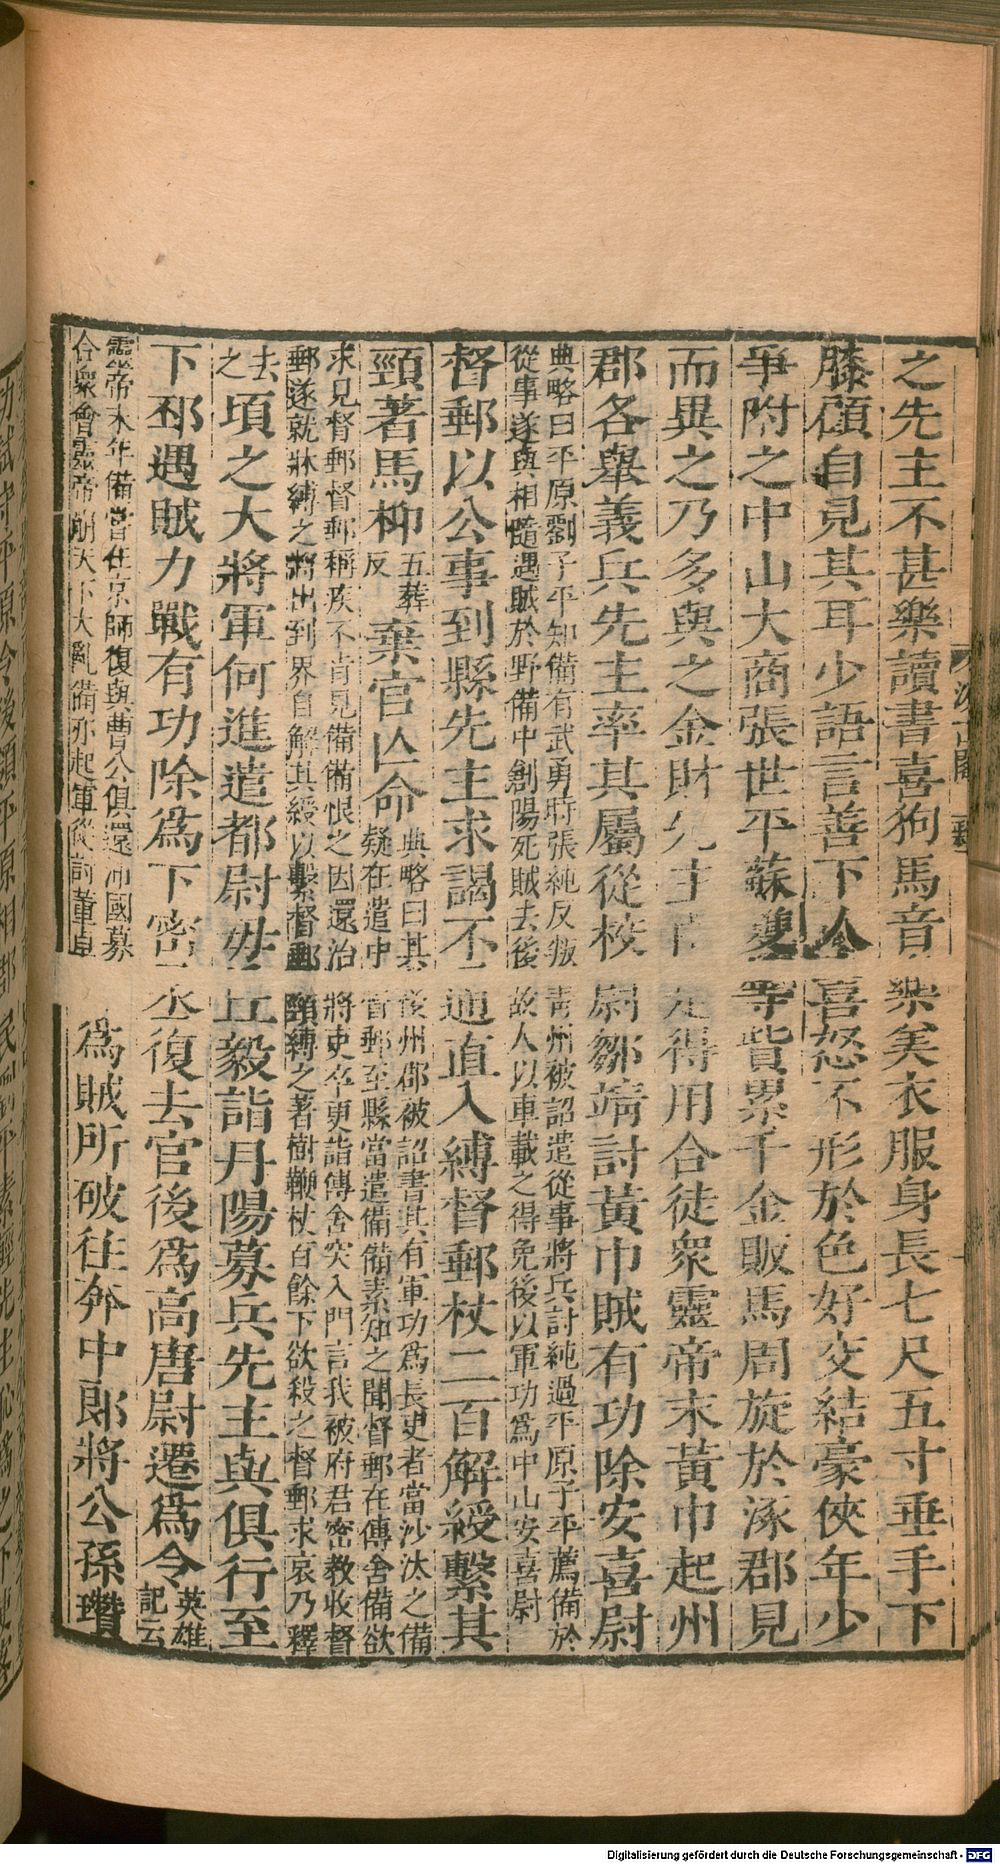 之先主不甚樂讀書喜狗馬音樂美衣服身長七尺五寸垂手下
膝顧自見其耳少語言善下人喜怒不形於色好交結豪俠年少
爭附之中山大商張世平蘇雙等貲累千金販馬周旋於涿郡見
而異之乃多與之金財先主由是得用合徒衆靈帝末黃巾起州
郡各舉義兵先主率其屬從校尉鄒靖討黃巾賊有功除安喜尉
典略曰平原劉子平知備有武勇時張純反叛青州被詔遣從事將兵討純過平原子平薦備於
從事遂與相隨遇賊於野備中創陽死賊去後故人以車載之得免後以軍功爲中山安喜尉
督郵以公事到縣先主求謁不通直入縛督郵杖二百解綬繫其
頸著馬枊五葬反棄官亾命典略曰其後州郡被詔書其有軍功爲長吏者當沙汰之備
疑在遣中督郵至縣當遣備備素知之聞督郵在傳舍備欲
求見督郵督郵稱疾不肯見備備恨之因還治將吏卒更詣傳舍突入門言我被府君密教收督
郵遂就牀縛之將出到界自解其綬以繫督郵頸縛之著樹鞭杖百餘下欲殺之督郵求哀乃釋
去之頃之大將軍何進遣都尉毋丘毅詣丹陽募兵先主與俱行至
下邳遇賊力戰有功除爲下密丞復去官後爲高唐尉遷爲令英雄記云
靈帝末年備嘗在京師復與曹公俱還沛國募
合衆會靈帝崩天下大亂備亦起軍從討董卓
爲賊所破往奔中郎將公孫瓚
汲古閣
Digitalisierung gefördert durch die Deutsche Forschungsgemeinschaft - DFG